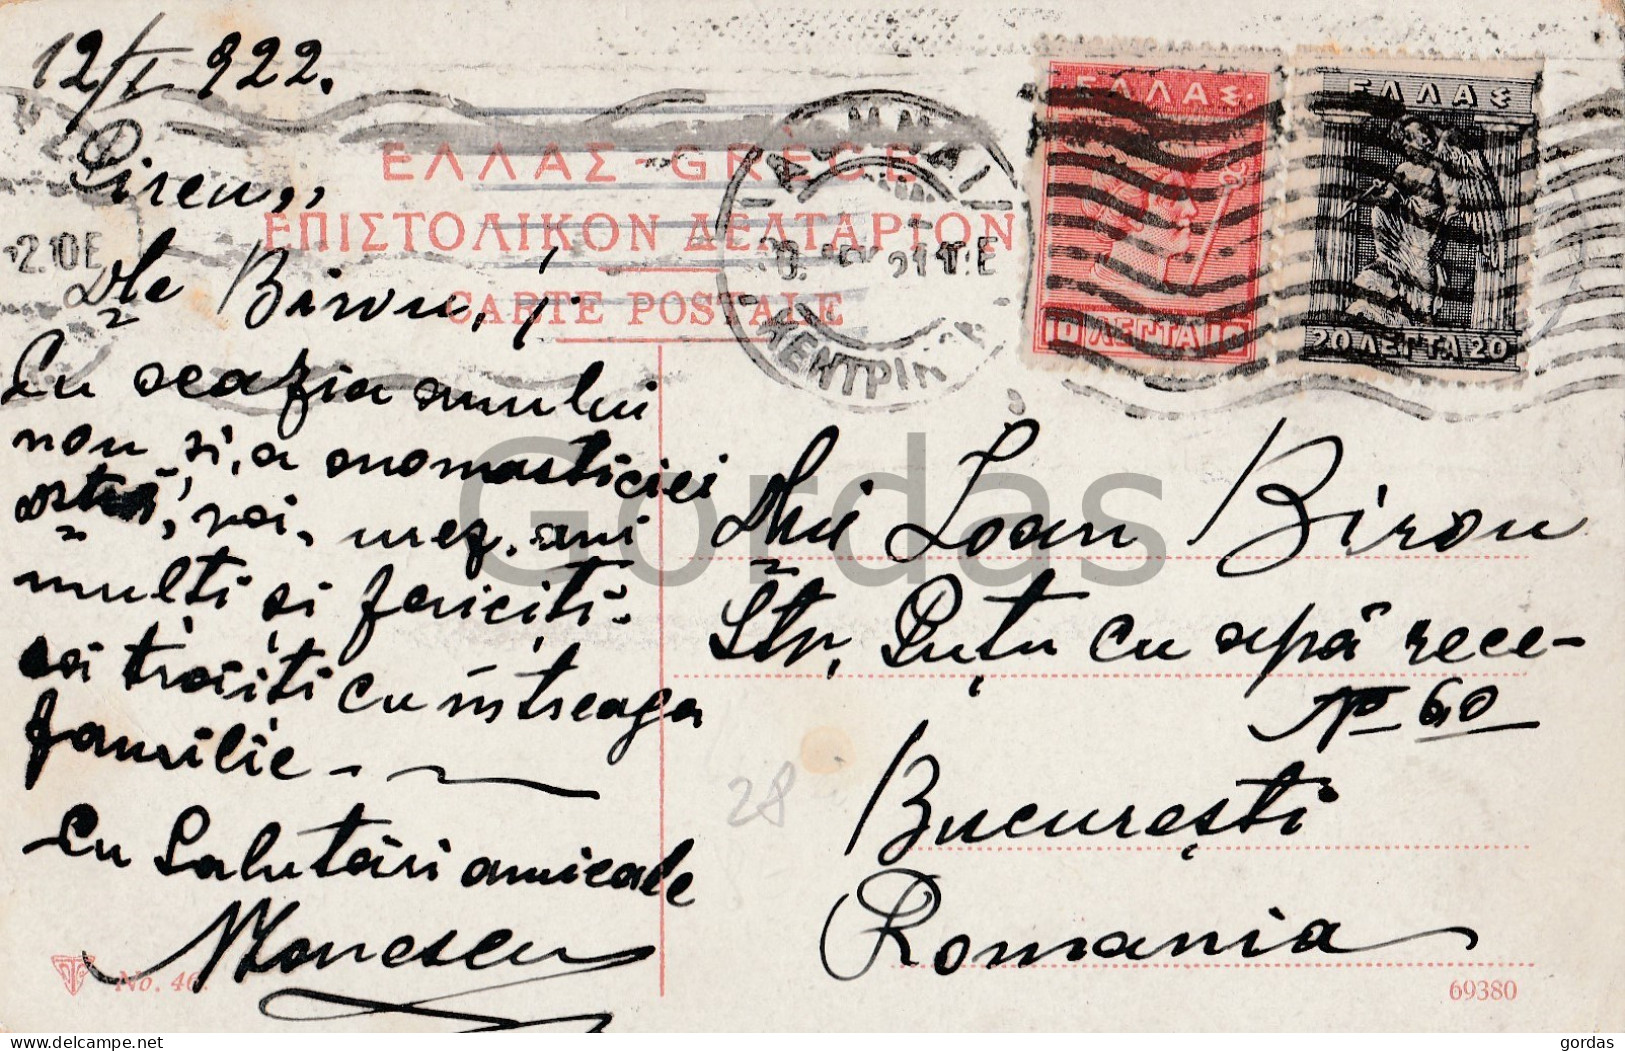 12/I 922.
Pireu,,
ΕΛΛΑΣ - GRÈCE
ΕΠΙΣΤΟΛΙΚΟΝ ΔΕΛΤΑΡΙΟΝ
CARTE POSTALE
ΑΘΗΝΑΙ
ΚΕΝΤΡΙΚ
ΕΛΛΑΣ
10 ΛΕΠΤΑ 10
ΕΛΛΑΣ
20 ΛΕΠΤΑ 20
Dle Birou,
Cu ocazia anului
nou, si, a onomasticiei
voi, urez, ani
mulți si fericiți.
să trăiți cu intreaga
familie -
Cu Salutări amicale
Dlui Ioan Birou
Str, Puțu cu apă rece-
No 60
București
Romania
28
No. 46.
69380
Gordas
www.delcampe.net
gordas